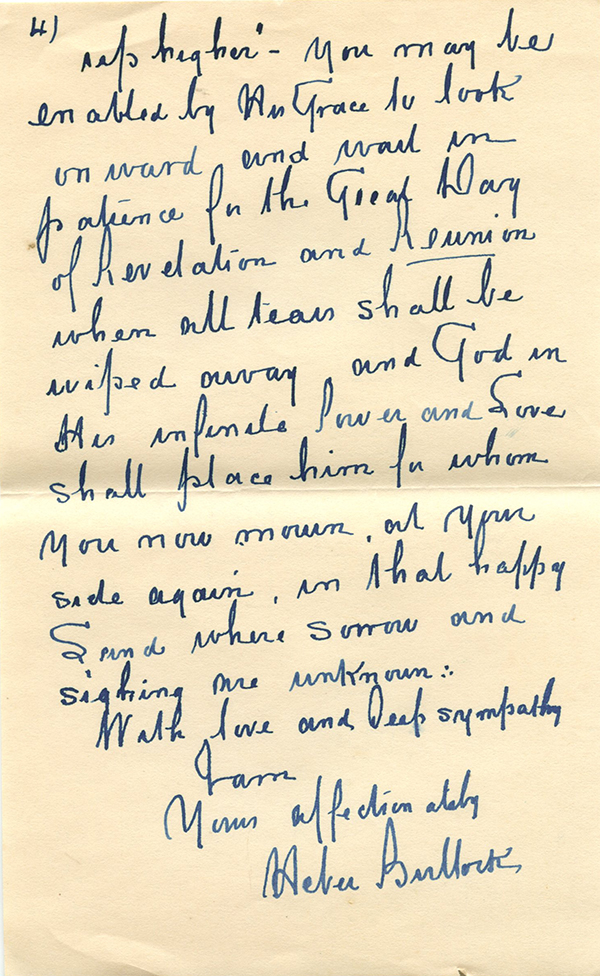 4)
step higher" - you may be
enabled by His Grace to look
onward, and wait in
patience for the Great Day
of Revelation and Reunion
when all tears shall be
wiped away, and God in
His infinite Power and Love
shall place him for whom
you now mourn, at your
side again, in that happy
Land where sorrow and
sighing are unknown :.
With love and deep sympathy
I am
Yours affectionately
Heber Bullock